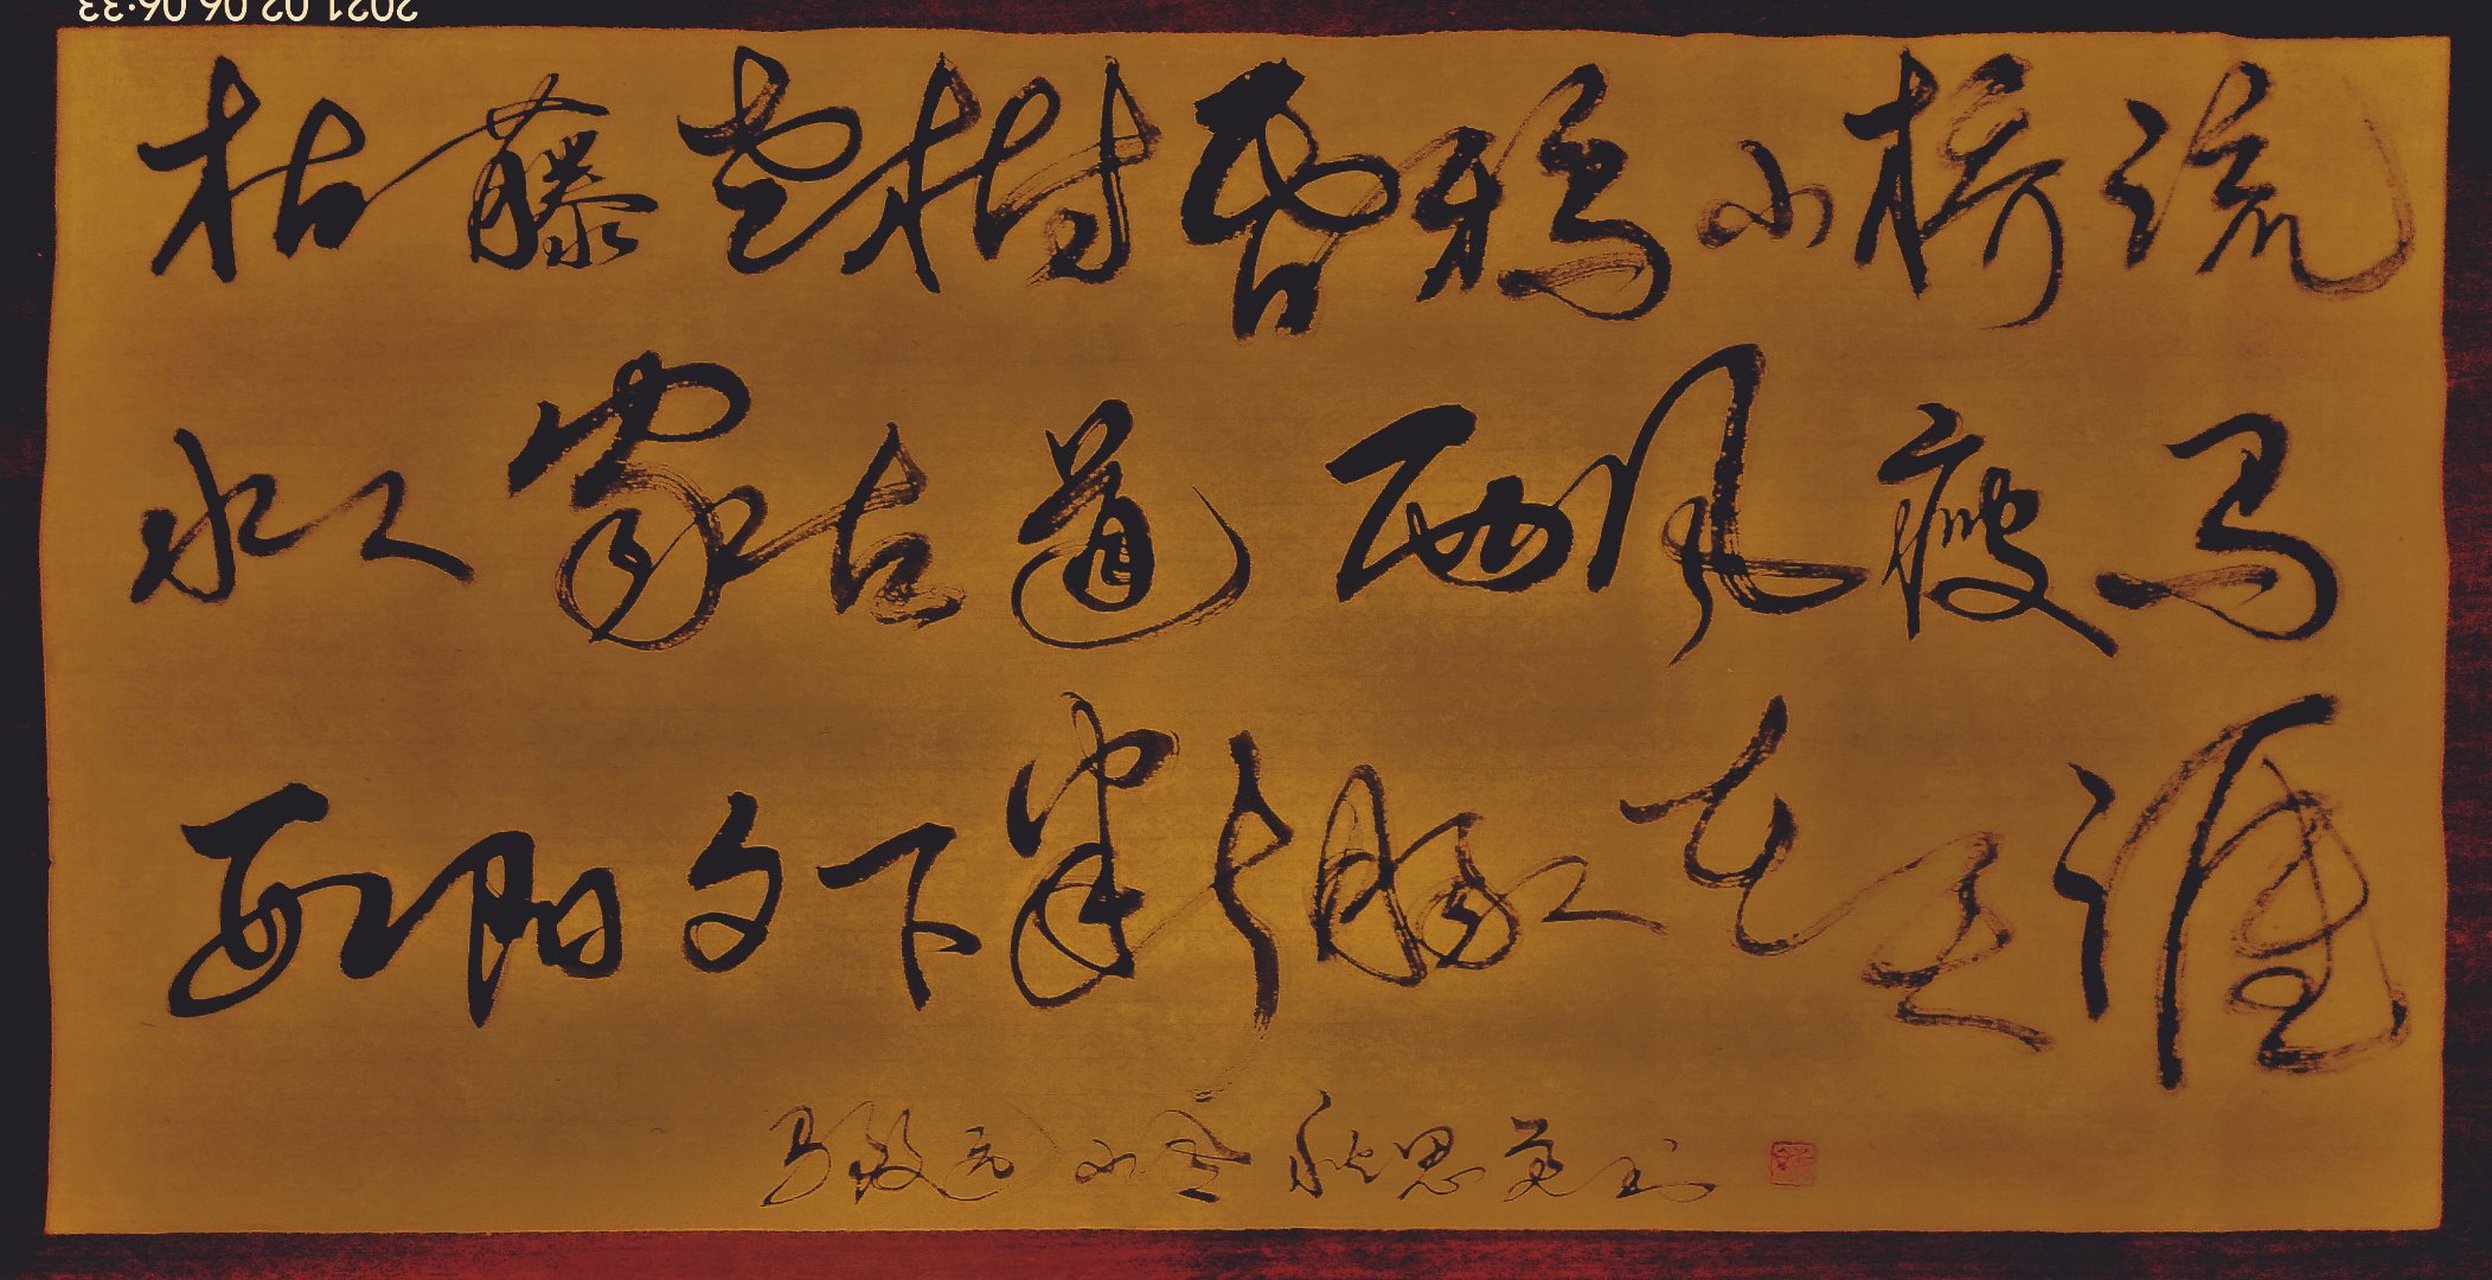 2021.02.06 06:33
枯藤老树昏鸦小桥流
水人家古道西风瘦马
夕阳西下断肠人在天涯
马致远 小令 秋思